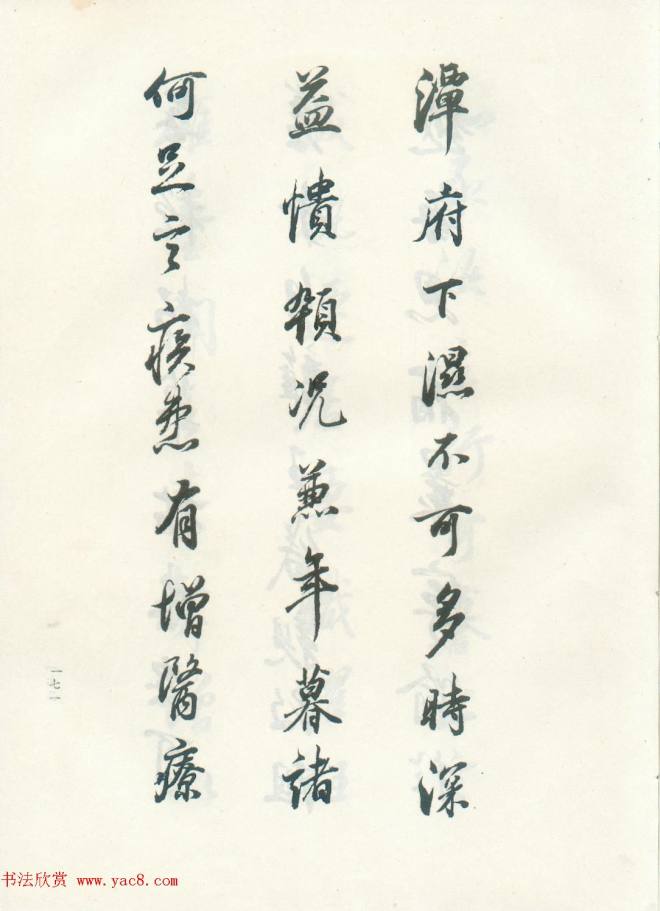 潭府下濕不可多時深
益憒頯況兼年暮諸
何足言疾患有增醫療
一七一
书法欣赏 www.yac8.com